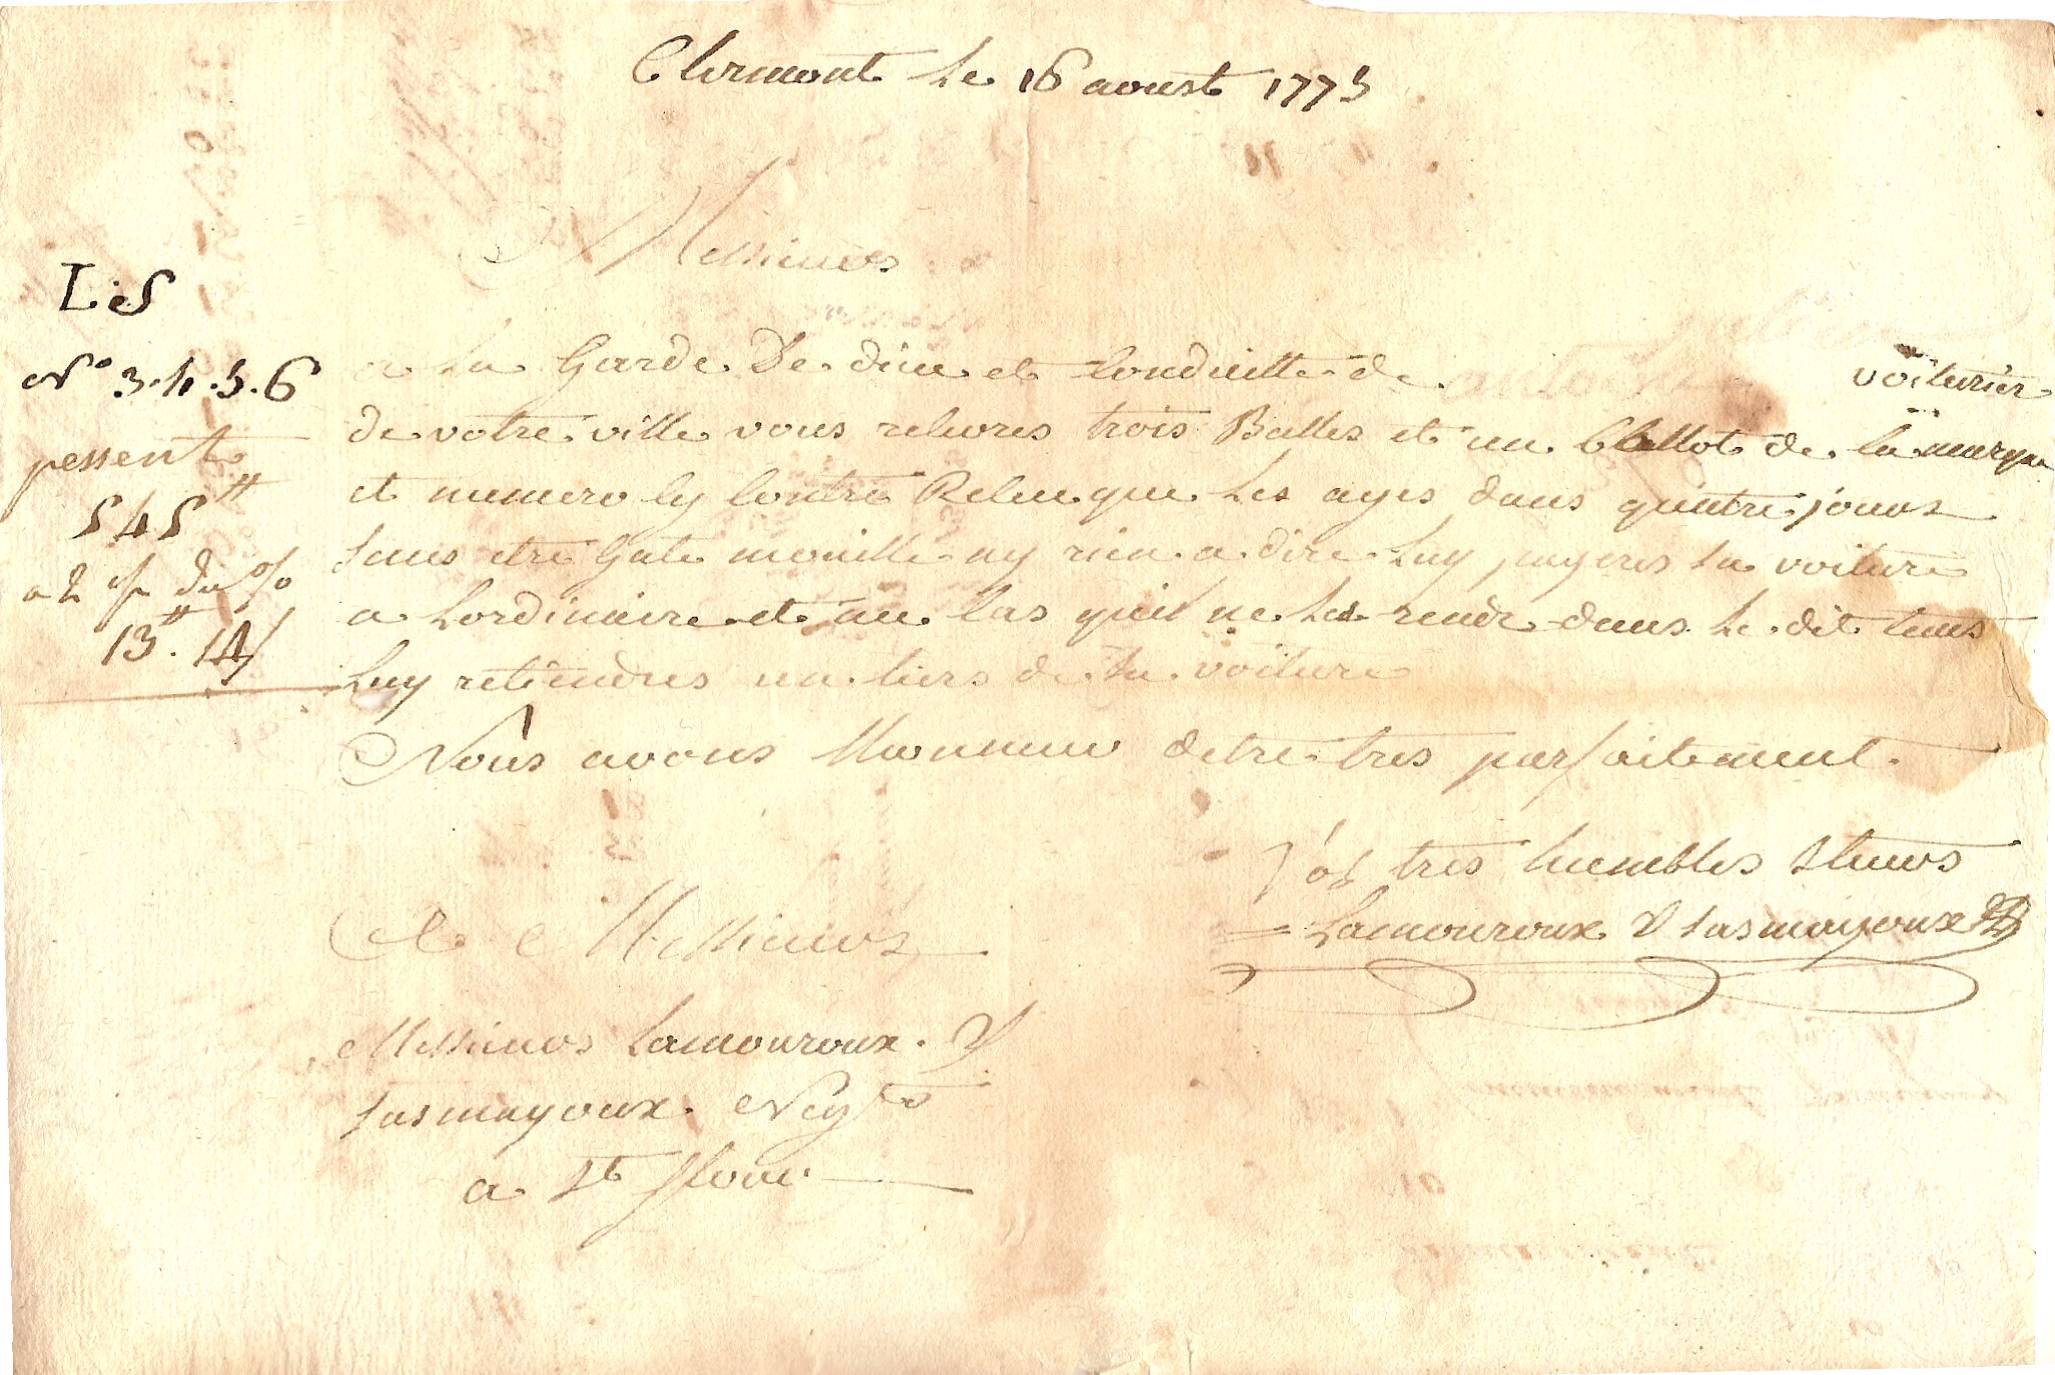 Clermont le 16 aoust 1775
Messieurs
LeS
N° 3. 4. 5. 6
pessent
545 ₶
a 2 du %
13 ₶. 
a la Garde De dieu et Conduitte de voiturier
de votre ville vous recevres trois Balles et un Ballot de la marque
et numero cy Contre Receu que Les ayes dans quatre jours
sans etre Gate mouille ny rien a dire Luy payeres sa voiture
a Lordinaire et au Cas quil ne Les rende dans Le dit tems
Luy retiendres un tiers de sa voiture
Nous avons lhonneur detre tres parfaitement
Vos tres humbles Steurs
Lamouroux & Sasmayoux
A Messieurs
Messieurs Lamouroux &
Sasmayoux Negts
a St flour